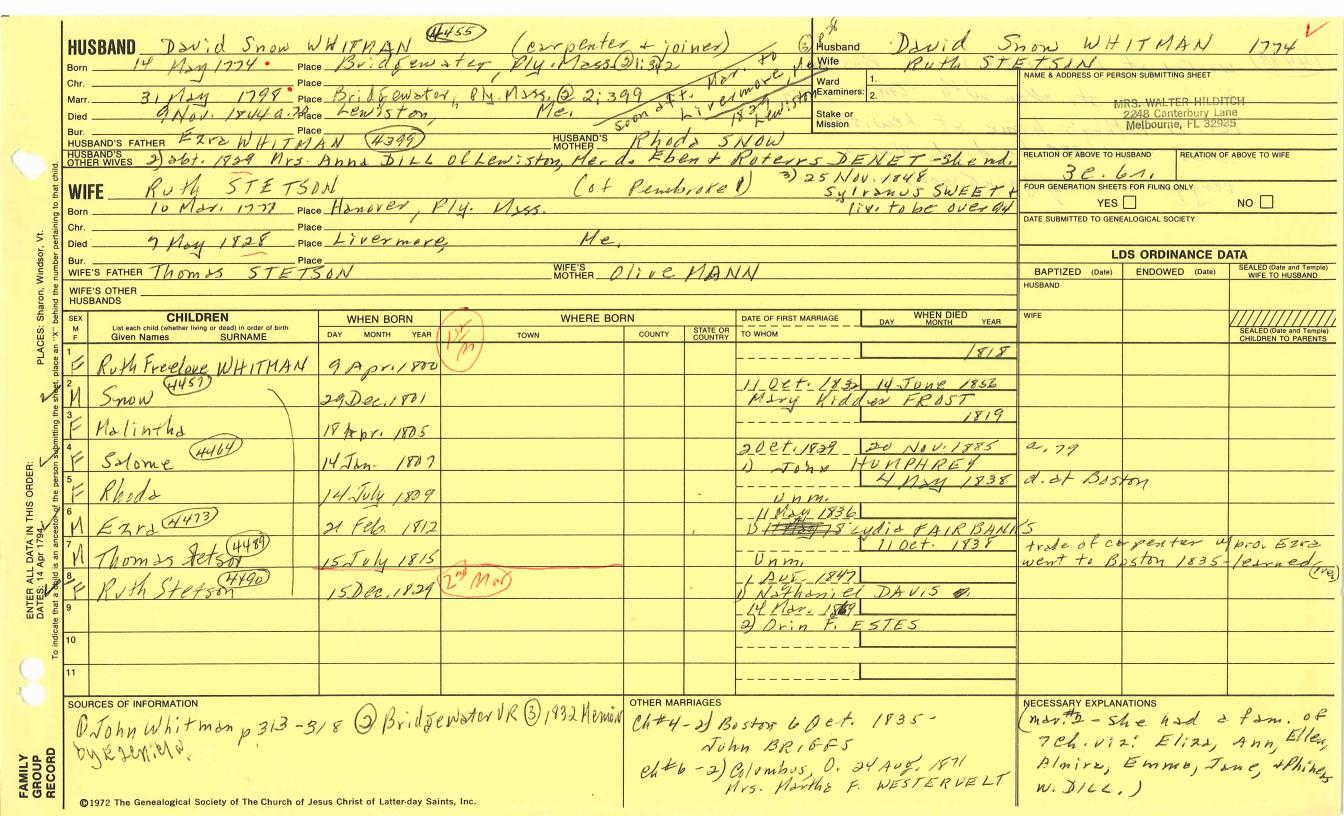 HUSBAND David Snow WHITMAN 4455 (carpenter + joiner)
Born 14 May 1774 Place Bridgewater, Ply. Mass. ② 1:342
Chr. Place
Marr. 31 May 1798 Place Bridgewater, Ply. Mass. ② 2:399
Died 9 Nov. 1844 Place Lewiston, Me.
Bur. Place
soon aft. mar. to Livermore, Me.
1829 Lewiston
HUSBAND'S FATHER Ezra WHITMAN 4399 HUSBAND'S MOTHER Rhoda SNOW
HUSBAND'S OTHER WIVES 2) abt. 1829 Mrs. Anna DILL of Lewiston, Me. d. Eben + DENET - she md.
3) 25 Nov. 1848
Sylvanus SWEET +
liv. to be over 94
WIFE Ruth STETSON (of Pembroke)
Born 10 Mar. 1778 Place Hanover, Ply. Mass.
Chr. Place
Died 9 May 1828 Place Livermore, Me.
Bur. Place
WIFE'S FATHER Thomas STETSON WIFE'S MOTHER Olive MANN
WIFE'S OTHER HUSBANDS
Husband David Snow WHITMAN 1774
Wife Ruth STETSON
Ward Examiners: 1.
2.
Stake or Mission
NAME & ADDRESS OF PERSON SUBMITTING SHEET
MRS. WALTER HILDITCH
2248 Canterbury Lane
Melbourne, FL 32935
RELATION OF ABOVE TO HUSBAND RELATION OF ABOVE TO WIFE
FOUR GENERATION SHEETS FOR FILING ONLY
YES NO
DATE SUBMITTED TO GENEALOGICAL SOCIETY
LDS ORDINANCE DATA
BAPTIZED (Date) ENDOWED (Date) SEALED (Date and Temple) WIFE TO HUSBAND
HUSBAND
WIFE
SEALED (Date and Temple) CHILDREN TO PARENTS
SEX M F
CHILDREN
List each child (whether living or dead) in order of birth
Given Names SURNAME
WHEN BORN
DAY MONTH YEAR
WHERE BORN
TOWN COUNTY STATE OR COUNTRY
DATE OF FIRST MARRIAGE
TO WHOM
WHEN DIED
DAY MONTH YEAR
1 F Ruth Freelove WHITMAN 9 Apr. 1800 1818
2 M Snow 4457 29 Dec. 1801 11 Oct. 1832 14 June 1856
Mary Kidder FROST
3 F Malintha 18 Apr. 1805 1819
4 F Salome 4464 14 Jan. 1807 2 Oct. 1829 20 Nov. 1885 a. 79
1) John HUMPHREY
5 F Rhoda 14 July 1809 4 May 1838 d. at Boston
unm.
6 M Ezra 4473 21 Feb. 1812 11 May 1836
1) Lydia FAIRBANKS
7 M Thomas Stetson 4489 15 July 1815 11 Oct. 1838 trade of carpenter w/bro. Ezra
Unm. went to Boston 1835 - learned
8 F Ruth Stetson 4490 15 Dec. 1829 2nd Mar 1 Aug. 1847
1) Nathaniel DAVIS
9 14 Mar. 1869
2) Orin F. ESTES
10
11
SOURCES OF INFORMATION
① John Whitman p 313-318 ② Bridgewater VR ③ 1832 Memoir
OTHER MARRIAGES
Ch #4 - 2) Boston 6 Oct. 1835 -
John BRIGGS
Ch #6 - 2) Columbus, O. 24 Aug. 1871
Mrs. Martha F. WESTERVELT
NECESSARY EXPLANATIONS
(mar. #2 - she had a fam. of
7 ch. viz: Eliza, Ann, Ellen,
Almira, Emma, Jane, + Phineas
W. DILL.)
FAMILY GROUP RECORD
©1972 The Genealogical Society of The Church of Jesus Christ of Latter-day Saints, Inc.
ENTER ALL DATA IN THIS ORDER:
DATES: 14 Apr 1794
PLACES: Sharon, Windsor, Vt.
To indicate that a child is an ancestor of the person submitting the sheet, place an "X" behind the number pertaining to that child.